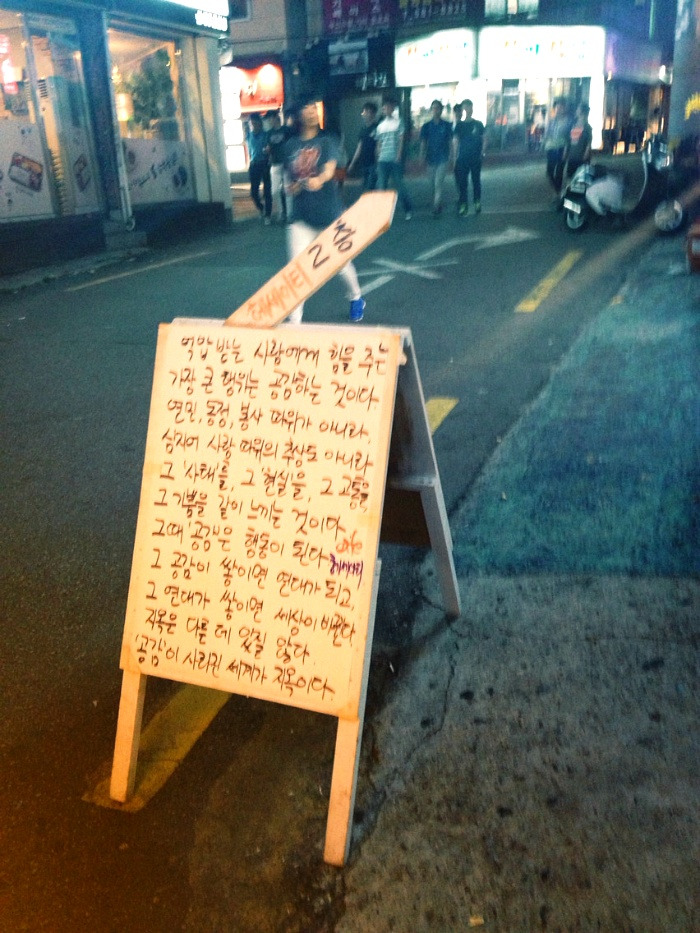 헤세이티
억압받는 사람에게 힘을 주는
가장 큰 행위는 공감하는 것이다.
연민, 동정, 봉사 따위가 아니라.
심지어 사랑 따위의 추상도 아니라
그 '사태'를, 그 '현실'을, 그 고통을,
그 기쁨을 같이 느끼는 것이다.
그때 '공감'은 행동이 된다
그 공감이 쌓이면 연대가 되고,
그 연대가 쌓이면 세상이 바뀐다
지옥은 다른 데 있질 않다.
'공감'이 사라진 세계가 지옥이다.